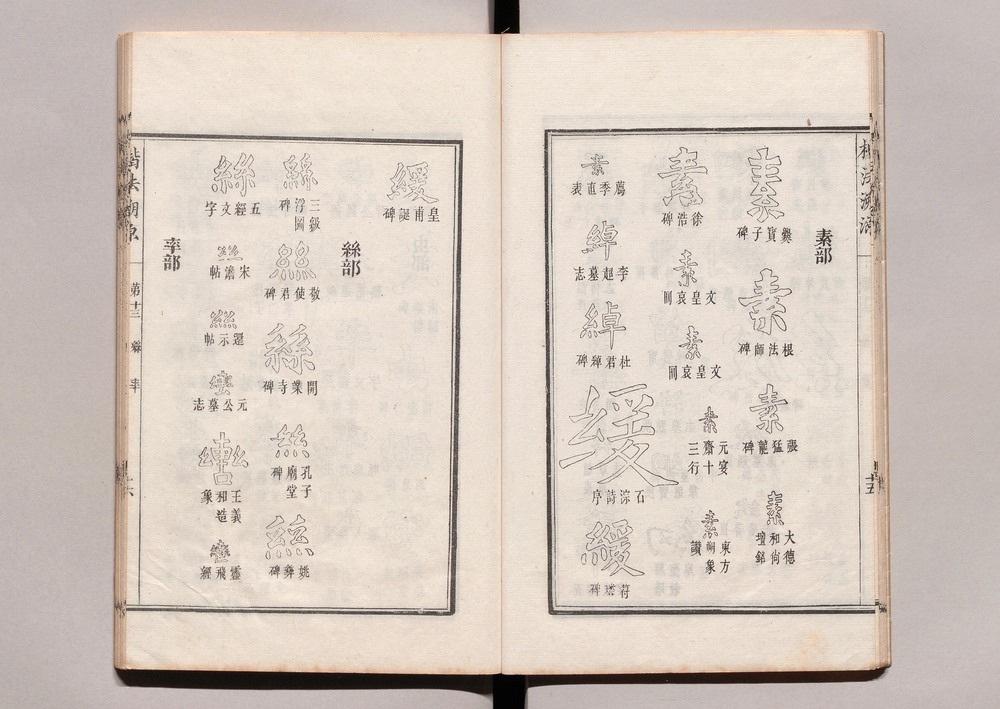 素部
素
爨寶子碑
素
根法師碑
素
張猛龍碑
素
大德
和尚
壇銘
素
徐浩碑
素
文皇哀冊
素
文皇哀冊
素
元宴
齋十
三行
素
東方
朔象
讚
素
薦季直表
綽
李超墓志
綽
杜君綽碑
緩
石淙詩序
緩
苻璘碑
十五
緩
皇甫誕碑
絲部
絲
三級
浮圖
碑
絲
敬使君碑
絲
開業寺碑
絲
孔子
廟堂
碑
絲
姚彝碑
絲
五經文字
絲
宋儋帖
絲
還示帖
轡
元公墓志
轡
王義
和造
象
轡
靈飛經
率部
楷法溯原
第十三
絲
率